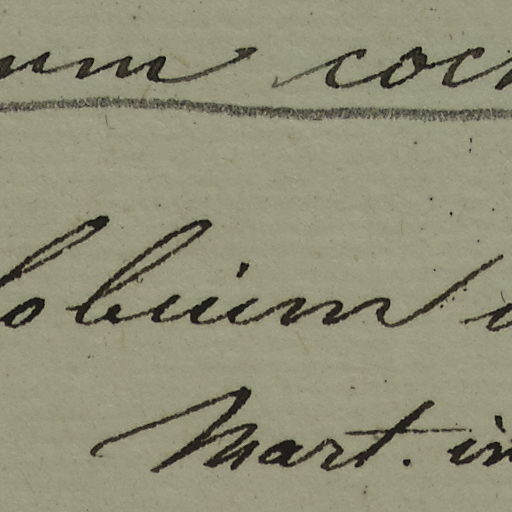 um coc
lobium c
Mart. in